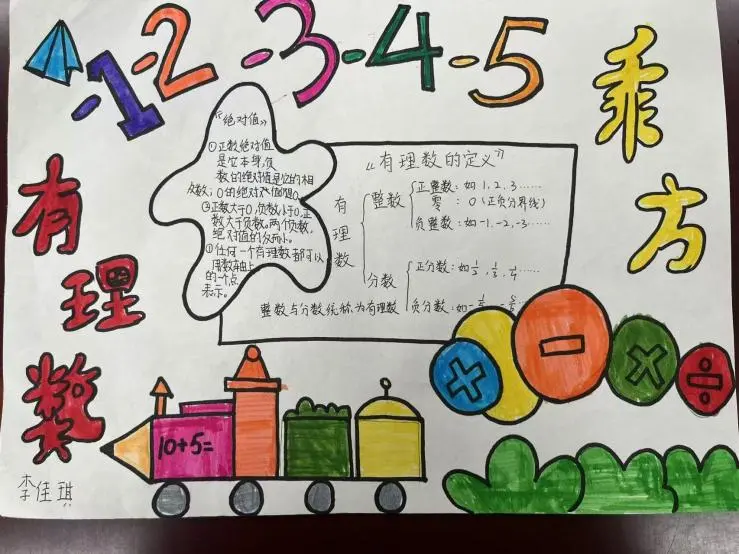 -1-2-3-4-5
乘方
有理数
“绝对值”
①正数绝对值
是它本身,负
数的绝对值是它的相
反数;0的绝对值是0。
②正数大于0,负数小于0,正
数大于负数。两个负数,
绝对值的反而小。
①任何一个有理数都可以
用数轴上
的一个点
表示。
“有理数的定义”
有理数
整数
正整数:如1,2,3……
零:0(正负分界线)
负整数:如-1,-2,-3……
分数
正分数:如1/2,1/3,1/4……
负分数:如
整数与分数统称为有理数
+ - × ÷
10+5=
李佳琪